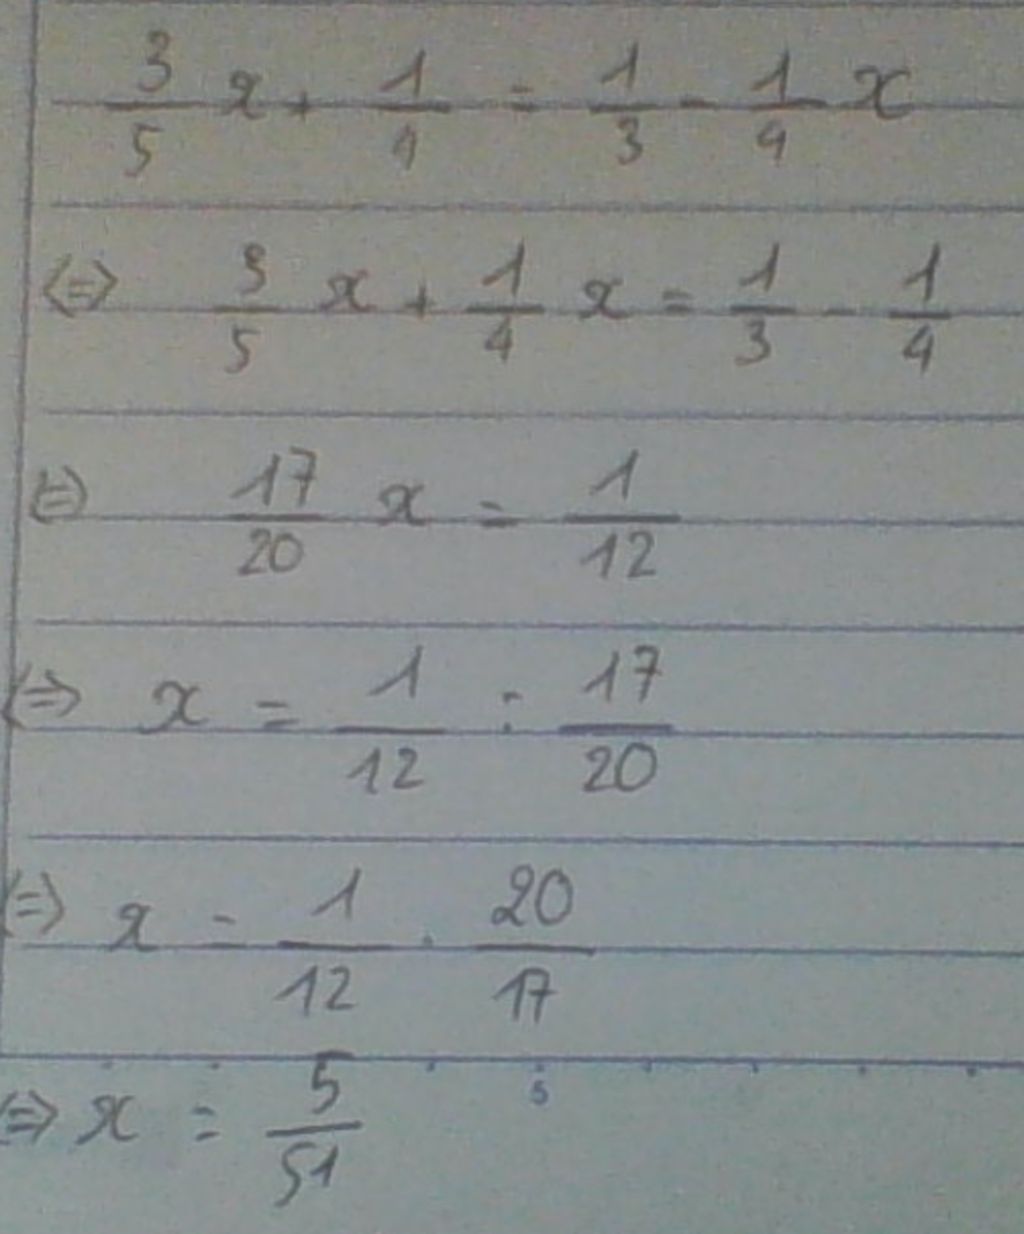 3/5 x + 1/4 = 1/3 - 1/4 x
<=> 3/5 x + 1/4 x = 1/3 - 1/4
<=> 17/20 x = 1/12
<=> x = 1/12 : 17/20
<=> x = 1/12 . 20/17
<=> x = 5/51